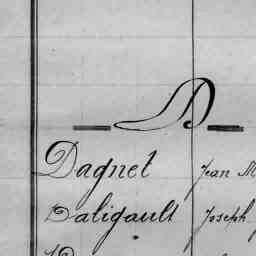 D
Dagnet Jean M
Daligault Joseph